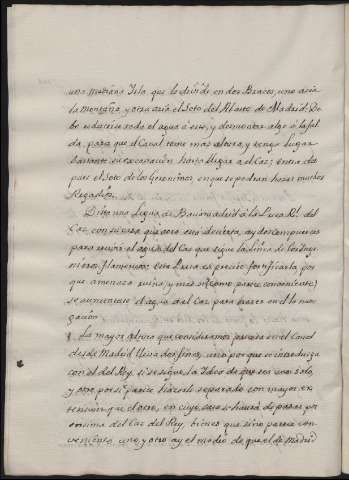 una mediana Isla que lo divide en dos Brazos, uno acia
la Montaña y otro acia el Soto del Abato de Madrid; De
be reducirse todo el agua á este, y desmontar algo á la fal
da, para que el Canal tome mas altura, y tenga lugar
bastante su excavacion hasta llegar al Caz; entra des
pues el Soto de los Geronimos, en que se podran hacer muchos
Regadios.
Dista una Legua de Baciamadrid á la Presa Rl. del
Caz, con su casa que otro, y dos compuertas
para recivir el agua del Caz que sigue la linea de los Inge
nieros flamencos; esta Presa es preciso fortificarla, por
que amenaza ruina, y mas si (como parece conveniente)
se aumentare el agua del Caz para hacer en el la nave
gacion.
La mayor altura que consideramos precisa en el Canal
desde Madrid lleva dos fines, uno por que se introduzca
con el del Rey, si se sigue la Idea de que sea uno solo,
y otro por si parece hacerle separado con mayor ex
tension que el otro, en cuyo caso se havrá de pasar por
encima del Caz del Rey, bien es que si no parece con
veniente uno, y otro ay el medio de que el de Madrid